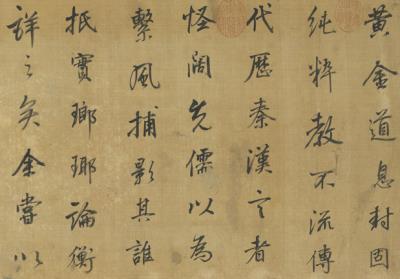 黄金道息封固
純粹教不流傳
代歷秦漢言者
怪闊先儒以為
繫風捕影其誰
抵實瑯琊論衡
詳之矣余嘗以